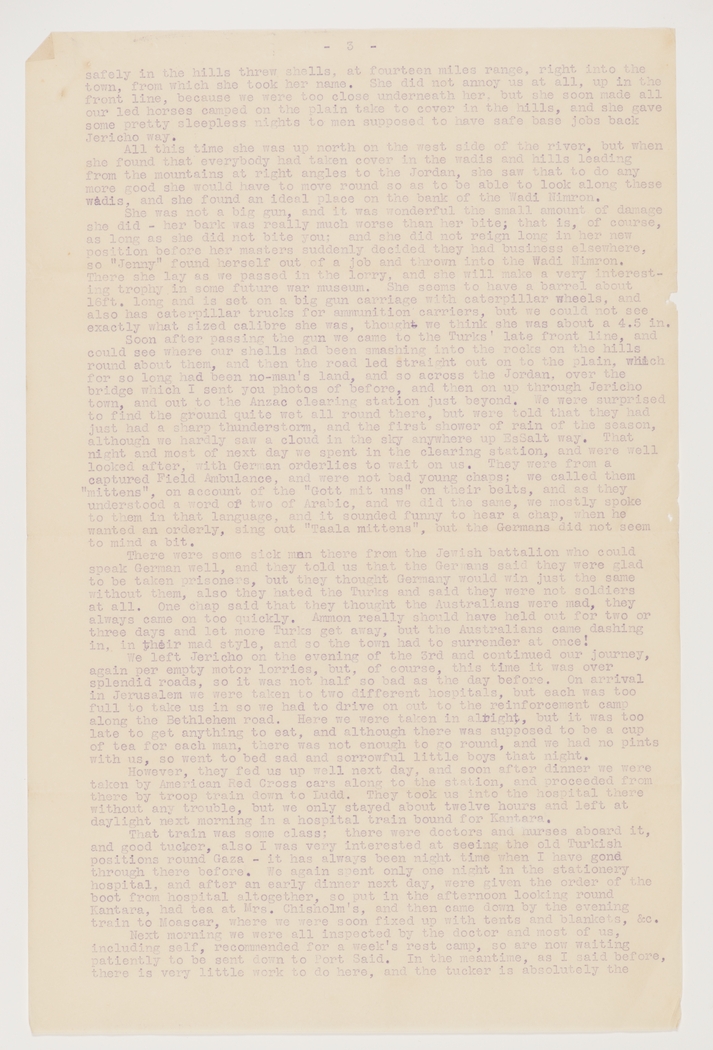 - 3 -
safely in the hills threw shells, at fourteen miles range, right into the
town, from which she took her name.  She did not annoy us at all, up in the
front line, because we were too close underneath her, but she soon made all
our led horses camped on the plain take to cover in the hills, and she gave
some pretty sleepless nights to men supposed to have safe base jobs back
Jericho way.
All this time she was up north on the west side of the river, but when
she found that everybody had taken cover in the wadis and hills leading
from the mountains at right angles to the Jordan, she saw that to do any
more good she would have to move round so as to be able to look along these
wadis, and she found an ideal place on the bank of the Wadi Nimron.
She was not a big gun, and it was wonderful the small amount of damage
she did - her bark was really much worse than her bite; that is, of course,
as long as she did not bite you;  and she did not reign long in her new
position before her masters suddenly decided they had business elsewhere,
so "Jenny" found herself out of a job and thrown into the Wadi Nimron.
There she lay as we passed in the lorry, and she will make a very interest-
ing trophy in some future war museum.  She seems to have a barrel about
16ft. long and is set on a big gun carriage with caterpillar wheels, and
also has caterpillar trucks for ammunition carriers, but we could not see
exactly what sized calibre she was, though we think she was about a 4.5 in.
Soon after passing the gun we came to the Turks' late front line, and
could see where our shells had been smashing into the rocks on the hills
round about them, and then the road led straight out on to the plain, which
for so long had been no-man's land, and so across the Jordan, over the
bridge which I sent you photos of before, and then on up through Jericho
town, and out to the Anzac clearing station just beyond.  We were surprised
to find the ground quite wet all round there, but were told that they had
just had a sharp thunderstorm, and the first shower of rain of the season,
although we hardly saw a cloud in the sky anywhere up EsSalt way.  That
night and most of next day we spent in the clearing station, and were well
looked after, with German orderlies to wait on us.  They were from a
captured Field Ambulance, and were not bad young chaps;  we called them
"mittens", on account of the "Gott mit uns" on their belts, and as they
understood a word or two of Arabic, and we did the same, we mostly spoke
to them in that language, and it sounded funny to hear a chap, when he
wanted an orderly, sing out "Taala mittens", but the Germans did not seem
to mind a bit.
There were some sick men there from the Jewish battalion who could
speak German well, and they told us that the Germans said they were glad
to be taken prisoners, but they thought Germany would win just the same
without them, also they hated the Turks and said they were not soldiers
at all.  One chap said that they thought the Australians were mad, they
always came on too quickly.  Ammon really should have held out for two or
three days and let more Turks get away, but the Australians came dashing
in, in their mad style, and so the town had to surrender at once!
We left Jericho on the evening of the 3rd and continued our journey,
again per empty motor lorries, but, of course, this time it was over
splendid roads, so it was not half so bad as the day before.  On arrival
in Jerusalem we were taken to two different hospitals, but each was too
full to take us in so we had to drive on out to the reinforcement camp
along the Bethlehem road.  Here we were taken in alright, but it was too
late to get anything to eat, and although there was supposed to be a cup
of tea for each man, there was not enough to go round, and we had no pints
with us, so went to bed sad and sorrowful little boys that night.
However, they fed us up well next day, and soon after dinner we were
taken by American Red Cross cars along to the station, and proceeded from
there by troop train down to Ludd.  They took us into the hospital there
without any trouble, but we only stayed about twelve hours and left at
daylight next morning in a hospital train bound for Kantara.
That train was some class:  there were doctors and nurses aboard it,
and good tucker, also I was very interested at seeing the old Turkish
positions round Gaza - it has always been night time when I have gone
through there before.  We again spent only one night in the stationery
hospital, and after an early dinner next day, were given the order of the
boot from hospital altogether, so put in the afternoon looking round
Kantara, had tea at Mrs. Chisholm's, and then came down by the evening
train to Moascar, where we were soon fixed up with tents and blankets, &c.
Next morning we were all inspected by the doctor and most of us,
including self, recommended for a week's rest camp, so are now waiting
patiently to be sent down to Port Said.  In the meantime, as I said before,
there is very little work to do here, and the tucker is absolutely the